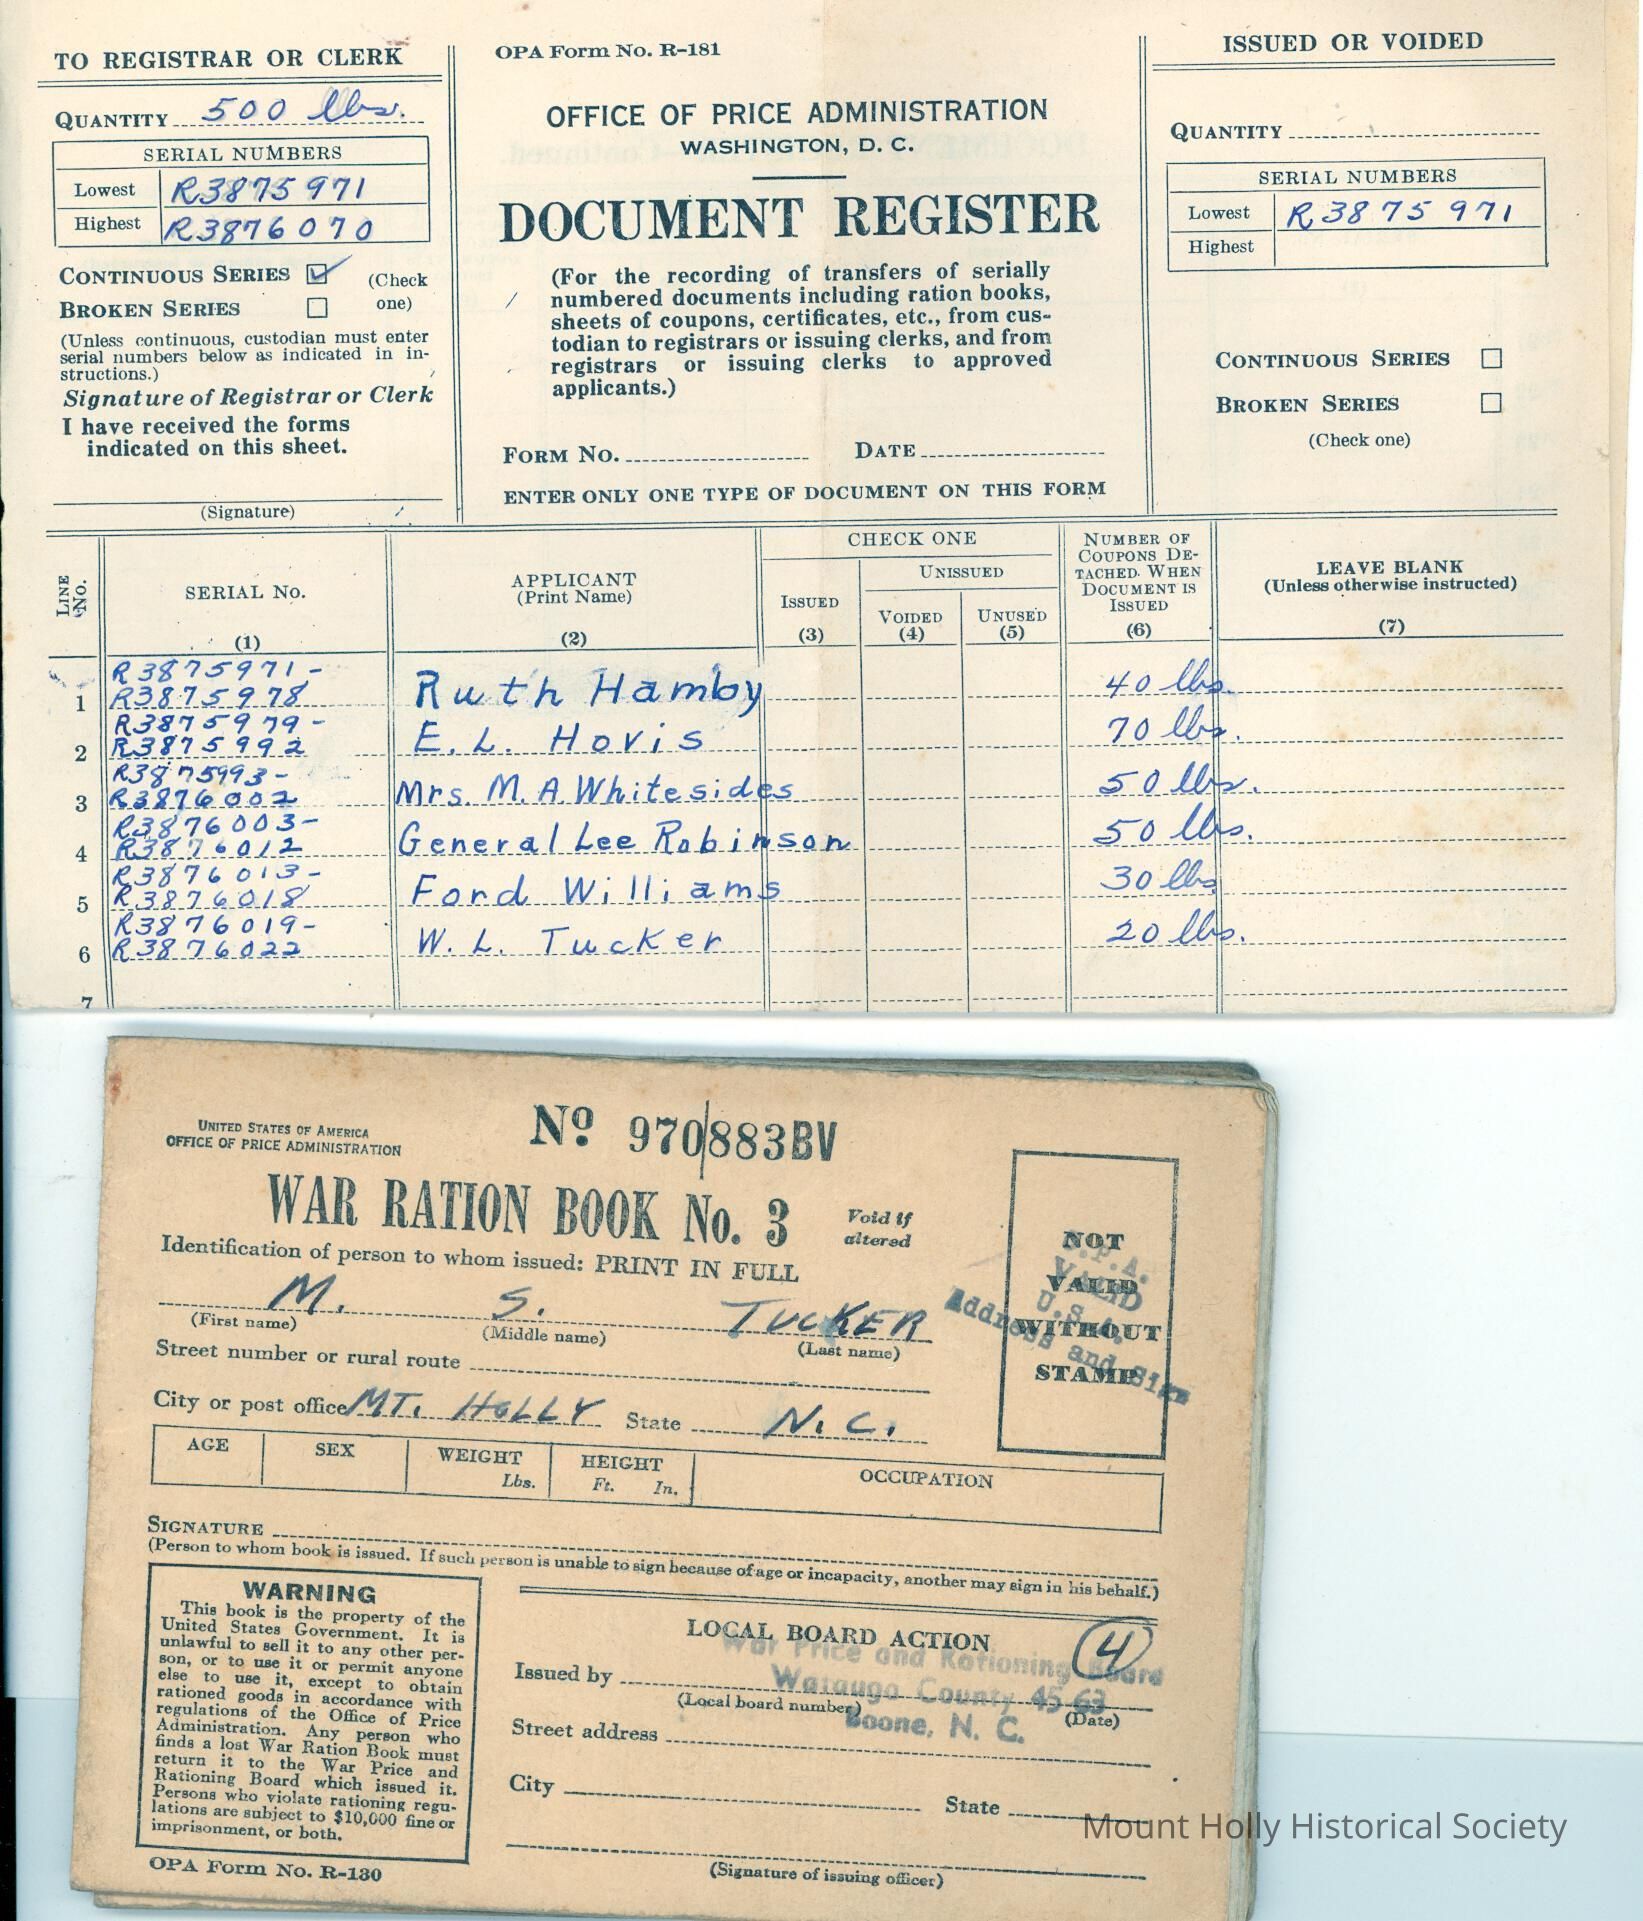 TO REGISTRAR OR CLERK
QUANTITY 500 lbs.
SERIAL NUMBERS
Lowest R3875971
Highest R3876070
CONTINUOUS SERIES ☑ (Check
BROKEN SERIES ☐ one)
(Unless continuous, custodian must enter
serial numbers below as indicated in in-
structions.)
Signature of Registrar or Clerk
I have received the forms
indicated on this sheet.
(Signature)
OPA Form No. R-181
OFFICE OF PRICE ADMINISTRATION
WASHINGTON, D. C.
DOCUMENT REGISTER
(For the recording of transfers of serially
numbered documents including ration books,
sheets of coupons, certificates, etc., from cus-
todian to registrars or issuing clerks, and from
registrars or issuing clerks to approved
applicants.)
FORM NO. DATE
ENTER ONLY ONE TYPE OF DOCUMENT ON THIS FORM
ISSUED OR VOIDED
QUANTITY
SERIAL NUMBERS
Lowest R3875971
Highest
CONTINUOUS SERIES ☐
BROKEN SERIES ☐
(Check one)
LINE NO.
SERIAL NO.
(1)
APPLICANT
(Print Name)
(2)
CHECK ONE
ISSUED
(3)
UNISSUED
VOIDED
(4)
UNUSED
(5)
NUMBER OF
COUPONS DE-
TACHED WHEN
DOCUMENT IS
ISSUED
(6)
LEAVE BLANK
(Unless otherwise instructed)
(7)
R3875971-
1 R3875978 Ruth Hamby 40 lbs.
R3875979-
2 R3875992 E. L. Hovis 70 lbs.
R3875993-
3 R3876002 Mrs. M. A. Whitesides 50 lbs.
R3876003-
4 R3876012 General Lee Robinson 50 lbs.
R3876013-
5 R3876018 Ford Williams 30 lbs
R3876019-
6 R3876022 W. L. Tucker 20 lbs.
7
UNITED STATES OF AMERICA
OFFICE OF PRICE ADMINISTRATION
No 970883BV
WAR RATION BOOK No. 3
Void if
altered
Identification of person to whom issued: PRINT IN FULL
M. S. TUCKER
(First name) (Middle name) (Last name)
Street number or rural route
City or post office MT. HOLLY State N.C.
AGE SEX WEIGHT Lbs. HEIGHT Ft. In. OCCUPATION
NOT
VALID
WITHOUT
STAMP
O.P.A.
VALID
U.S.A.
Address and Sign
SIGNATURE
(Person to whom book is issued. If such person is unable to sign because of age or incapacity, another may sign in his behalf.)
WARNING
This book is the property of the
United States Government. It is
unlawful to sell it to any other per-
son, or to use it or permit anyone
else to use it, except to obtain
rationed goods in accordance with
regulations of the Office of Price
Administration. Any person who
finds a lost War Ration Book must
return it to the War Price and
Rationing Board which issued it.
Persons who violate rationing regu-
lations are subject to $10,000 fine or
imprisonment, or both.
OPA Form No. R-130
LOCAL BOARD ACTION
4
War Price and Rationing Board
Issued by
Watauga County 45-63
(Local board number) (Date)
Boone, N. C.
Street address
City State
(Signature of issuing officer)
Mount Holly Historical Society